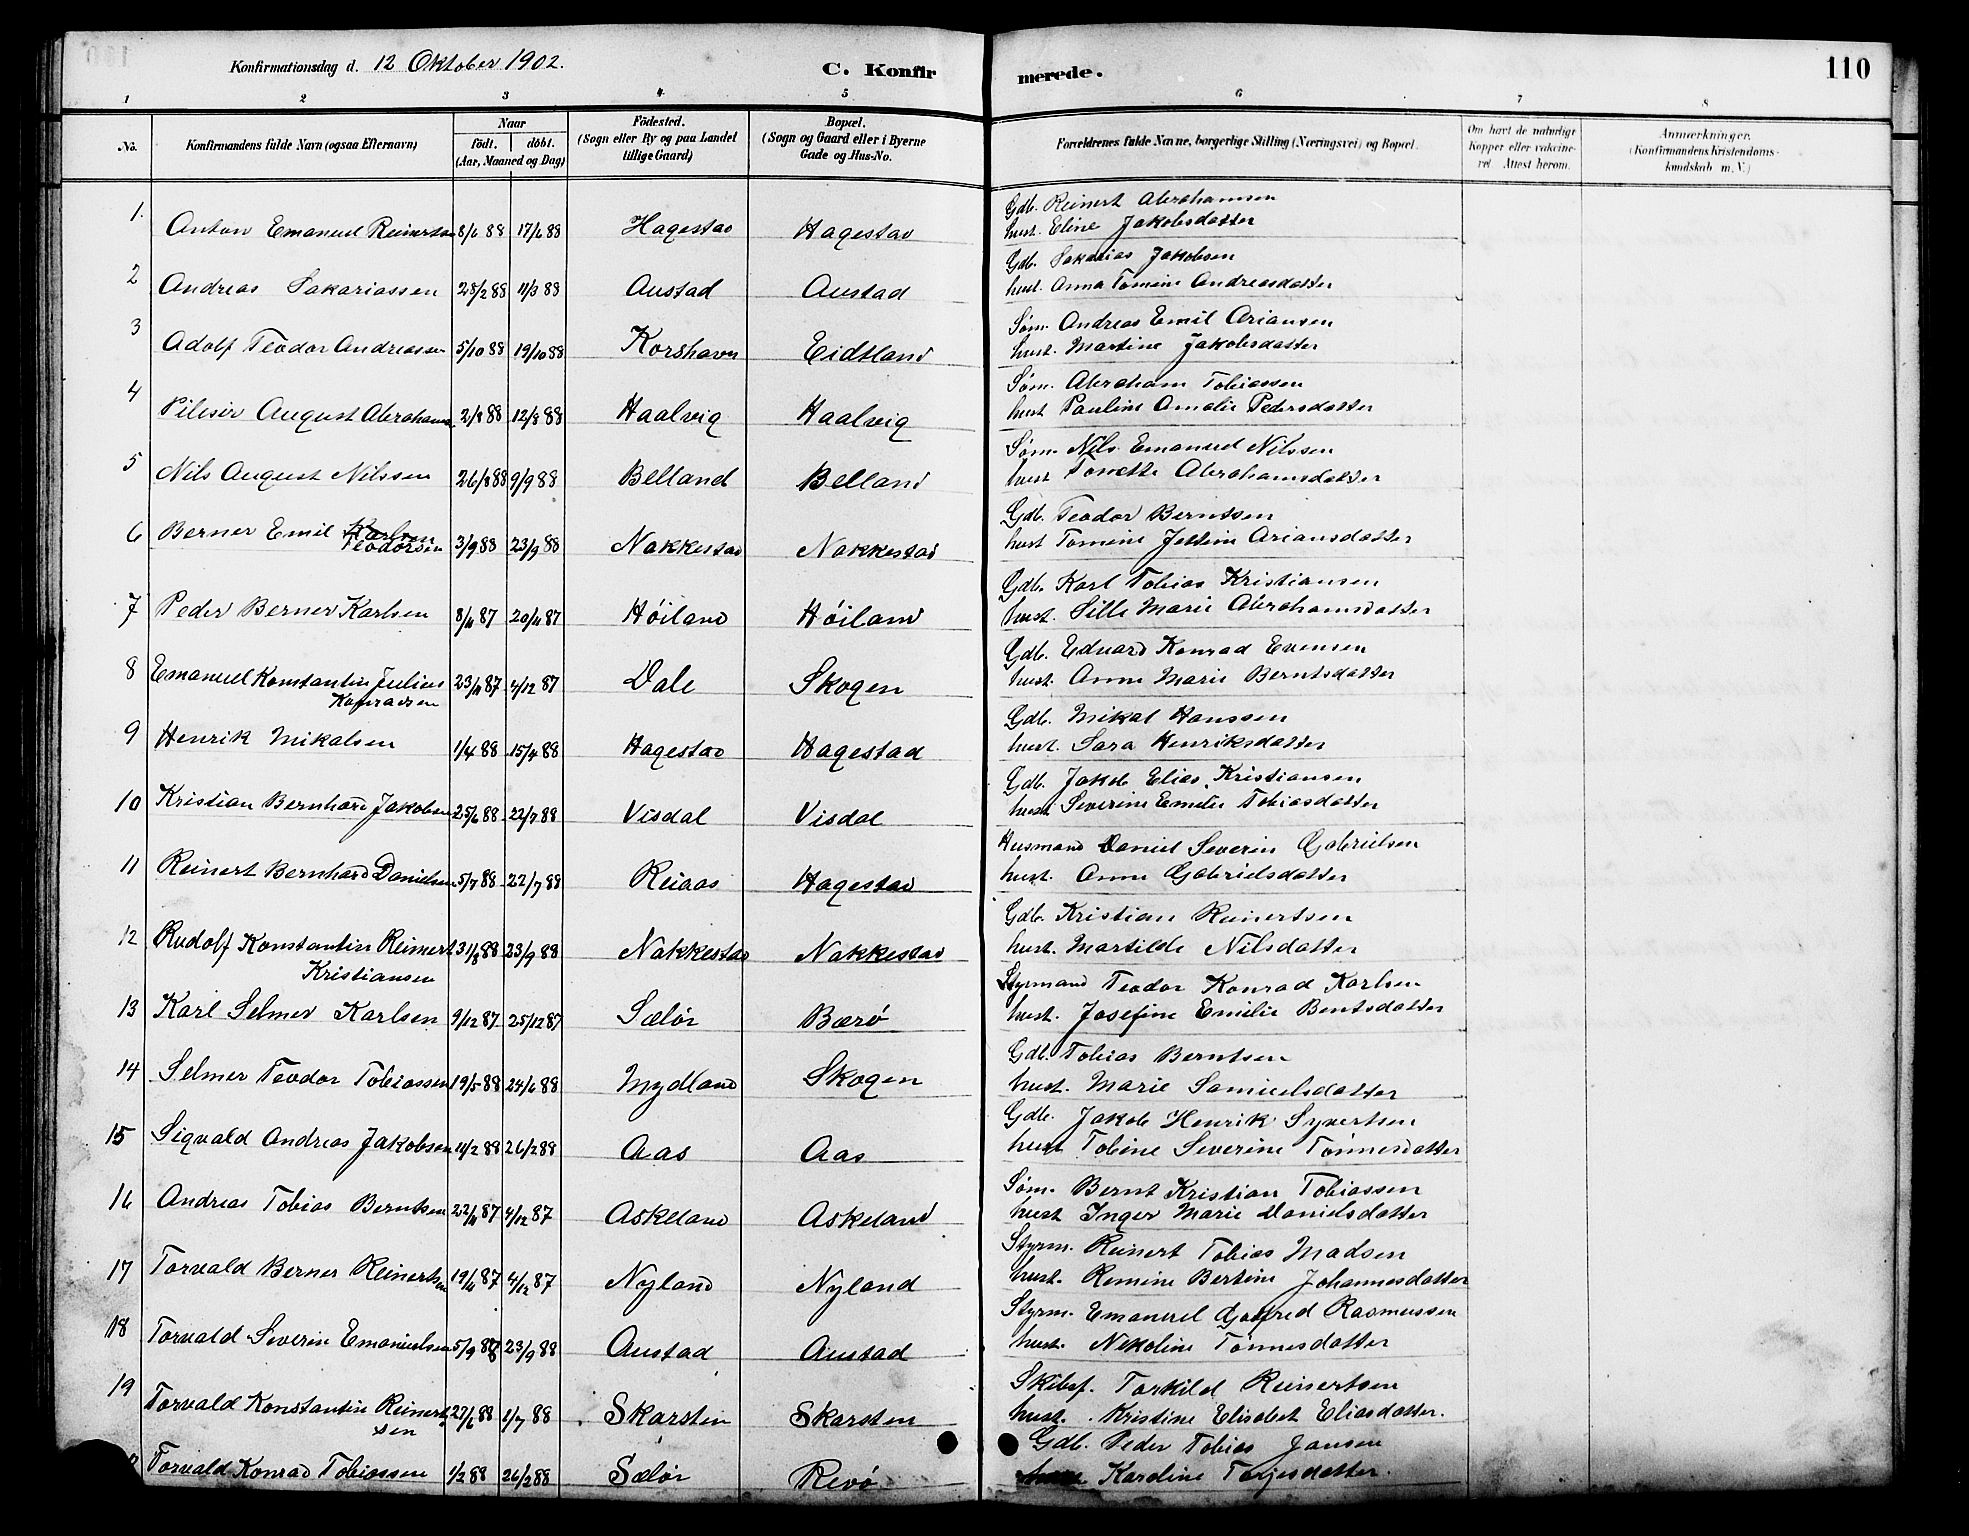 Konfirmationsdag d. 12 Oktober 1902.
C. Konfir
merede.
110
1 2 3 4 5 6 7 8
No.
Konfirmandens fulde Navn (ogsaa Efternavn)
Naar
födt. döbt.
(Aar, Maaned og Dag)
Födested.
(Sogn eller By og paa Landet
tillige Gaard)
Bopæl.
(Sogn og Gaard eller i Byerne
Gade og Hus-No.
Forældrenes fulde Navne, borgerlige Stilling (Næringsvei) og Bopæl.
Om havt de naturlige
Kopper eller vakcine-
ret. Attest herom.
Anmærkninger.
(Konfirmandens Kristendoms-
kundskab m. V.)
1. Anton Emanuel Reinertsen 8/6 88 17/6 88 Hagestad Hagestad
Gdb. Reinert Abrahamsen
hust. Eline Jakobsdatter
2 Andreas Sakariassen 28/2 88 11/3 88 Austad Austad
Gdb. Sakarias Jakobsen
hust. Anna Tomine Andreasdatter
3 Adolf Teodor Andreassen 5/10 88 19/10 88 Korshavn Eidtland
Søm. Andreas Emil Ariansen
hust. Martine Jakobsdatter
4 August Abrahams 2/8 88 12/8 88 Haalvig Haalvig
Søm. Abraham Tobiassen
hust Pauline Amalie Pedersdatter
5 Nils August Nilssen 26/8 88 9/9 88 Belland Belland
Søm. Nils Emanuel Nilssen
hust Tonette Abrahamsdatter
6 Berner Emil Karlsen
Teodorsen 3/9 88 23/9 88 Nakkestad Nakkestad
Gdb. Teodor Berntsen
hust Tomine Jettine Ariansdatter
7 Peder Berner Karlsen 8/4 87 20/4 87 Høiland Høiland
Gdb. Karl Tobias Kristiansen
hust. Sille Marie Abrahamsdatter
8 Emanuel Konstantin Julius
Konradsen 23/11 87 4/12 87 Dale Skogen
Gdb. Edvard Konrad Evensen
hust. Anne Marie Berntsdatter
9 Henrik Mikalsen 1/4 88 15/4 88 Hagestad Hagestad
Gdb. Mikal Hanssen
hust. Sara Henriksdatter
10 Kristian Bernhard Jakobsen 25/6 88 22/7 88 Visdal Visdal
Gdb. Jakob Elias Kristiansen
hust Severine Emilie Tobiasdatter
11 Reinert Bernhard Danielsen 5/7 88 22/7 88 Reiaas Hagestad
Husmand Daniel Severin Gabrielsen
hust. Anne Gabrielsdatter
12 Rudolf Konstantin Reinert
Kristiansen 31/8 88 23/9 88 Nakkestad Nakkestad
Gdb. Kristian Reinertsen
hust. Martilde Nilsdatter
13 Karl Selmer Karlsen 9/12 87 25/12 87 Sælør Bærø
Styrmand Teodor Konrad Karlsen
hust. Josefine Emilie Bentsdatter
14 Selmer Teodor Tobiassen 19/5 88 24/6 88 Mydland Skogen
Gdb. Tobias Berntsen
hust. Marie Samuelsdatter
15 Sigvald Andreas Jakobsen 11/2 88 26/2 88 Aas Aas
Gdb. Jakob Henrik Syvertsen
hust Tobine Severine Tønnesdatter
16 Andreas Tobias Berntsen 22/11 87 4/12 87 Askeland Askeland
Søm. Bernt Kristian Tobiassen
hust Inger Marie Danielsdatter
17 Torvald Berner Reinertsen 19/11 87 4/12 87 Nyland Nyland
Styrm. Reinert Tobias Madsen
hust. Remine Bertine Johannesdatter
18 Torvald Severin Emanuelsen 5/9 88 23/9 88 Austad Austad
Styrm. Emanuel Gotfred Rasmussen
hust. Nekoline Tønnesdatter
19 Torvald Konstantin Reinert
sen 27/6 88 1/7 88 Skarsten Skarsten
Skibsf. Torkild Reinertsen
hust. Kristine Elisabet Eliasdatter.
Torvald Konrad Tobiassen 1/2 88 26/2 88 Sælør Revø
Gdb. Peder Tobias Jansen
hust Karoline Torjesdatter.